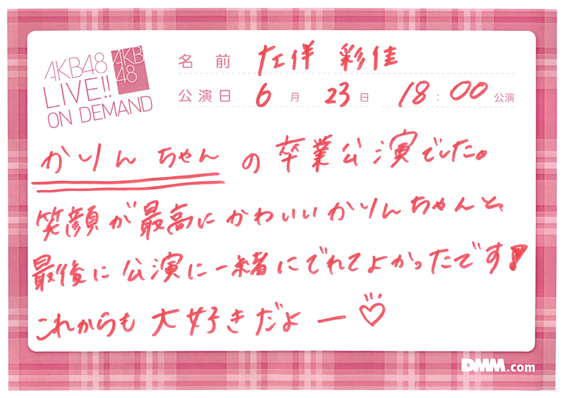 AKB48
LIVE!!
ON DEMAND
AKB
48
名前 左伴 彩佳
公演日 6月 23日 18:00公演
かりんちゃん の 卒業公演でした。
笑顔が最高にかわいいかりんちゃんと、
最後に公演に一緒にでれてよかったです!
これからも大好きだよー♡
DMM.com